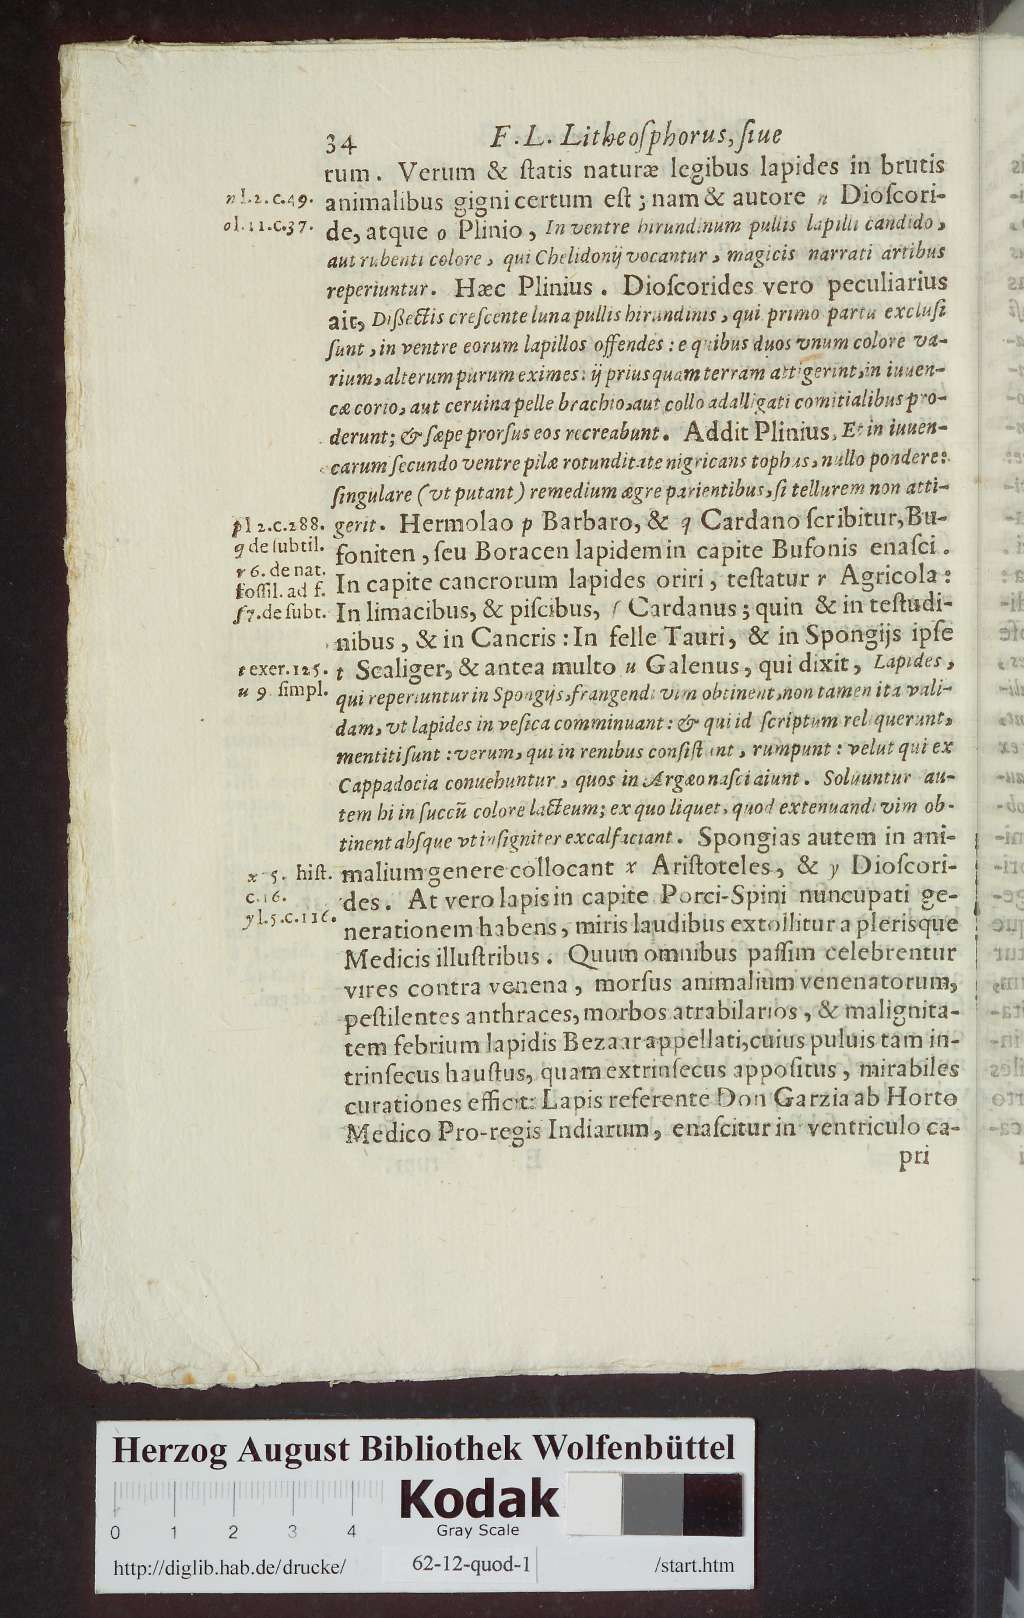 34 F. L. Litheoſphorus, ſiue
rum. Verum & ſtatis naturæ legibus lapides in brutis
n l. 2. c. 49. animalibus gigni certum eſt; nam & autore n Dioſcori-
o l. 11. c. 37. de, atque o Plinio, In ventre hirundinum pullis lapilli candido,
aut rubenti colore, qui Chelidonij vocantur, magicis narrati artibus
reperiuntur. Hæc Plinius. Dioſcorides vero peculiarius
ait, Dißectis creſcente luna pullis hirundinis, qui primo partu excluſi
ſunt, in ventre eorum lapillos offendes: e quibus duos vnum colore va-
rium, alterum purum eximes: ij prius quam terram attigerint, in iuuen-
cæ corio, aut ceruina pelle brachio, aut collo adalligati comitialibus pro-
derunt; & ſæpe prorſus eos recreabunt. Addit Plinius, Et in iuuen-
carum ſecundo ventre pilæ rotunditate nigricans tophus, nullo pondere:
ſingulare (vt putant) remedium ægre parientibus, ſi tellurem non atti-
p l 2. c. 288. gerit. Hermolao p Barbaro, & q Cardano ſcribitur, Bu-
q de ſubtil. foniten, ſeu Boracen lapidem in capite Bufonis enaſci.
r 6. de nat.
foſſil. ad f. In capite cancrorum lapides oriri, teſtatur r Agricola:
ſ 7. de ſubt. In limacibus, & piſcibus, ſ Cardanus; quin & in teſtudi-
nibus, & in Cancris: In felle Tauri, & in Spongijs ipſe
t exer. 125. t Scaliger, & antea multo u Galenus, qui dixit, Lapides,
u 9. ſimpl. qui reperiuntur in Spongijs, frangendi vim obtinent, non tamen ita vali-
dam, vt lapides in veſica comminuant: & qui id ſcriptum reliquerunt,
mentiti ſunt: verum, qui in renibus conſiſtunt, rumpunt: velut qui ex
Cappadocia conuehuntur, quos in Argæo naſci aiunt. Soluuntur au-
tem hi in ſuccũ colore lacteum; ex quo liquet, quod extenuandi vim ob-
tinent abſque vt inſigniter excalfaciant. Spongias autem in ani-
x 5. hiſt. malium genere collocant x Ariſtoteles, & y Dioſcori-
c. 16. des. At vero lapis in capite Porci-Spini nuncupati ge-
y l. 5. c. 116. nerationem habens, miris laudibus extollitur a plerisque
Medicis illuſtribus. Quum omnibus paſſim celebrentur
vires contra venena, morſus animalium venenatorum,
peſtilentes anthraces, morbos atrabilarios, & malignita-
tem febrium lapidis Bezaar appellati, cuius puluis tam in-
trinſecus hauſtus, quam extrinſecus appoſitus, mirabiles
curationes efficit: Lapis referente Don Garzia ab Horto
Medico Pro-regis Indiarum, enaſcitur in ventriculo ca-
pri
Herzog August Bibliothek Wolfenbüttel
Kodak
Gray Scale
0 1 2 3 4
http://diglib.hab.de/drucke/ 62-12-quod-1 /start.htm